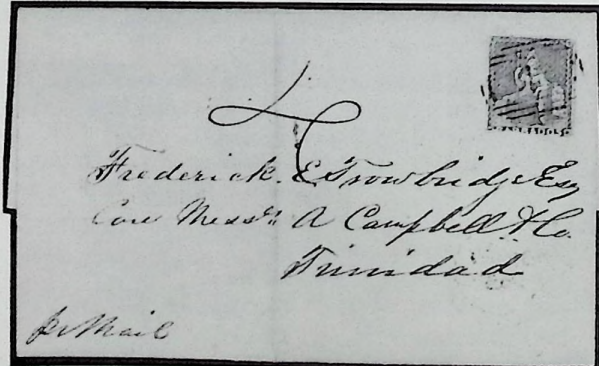 4
Frederick. E Trowbridge Esq
Care Messrs A Campbell & Co.
Trinidad
pr Mail